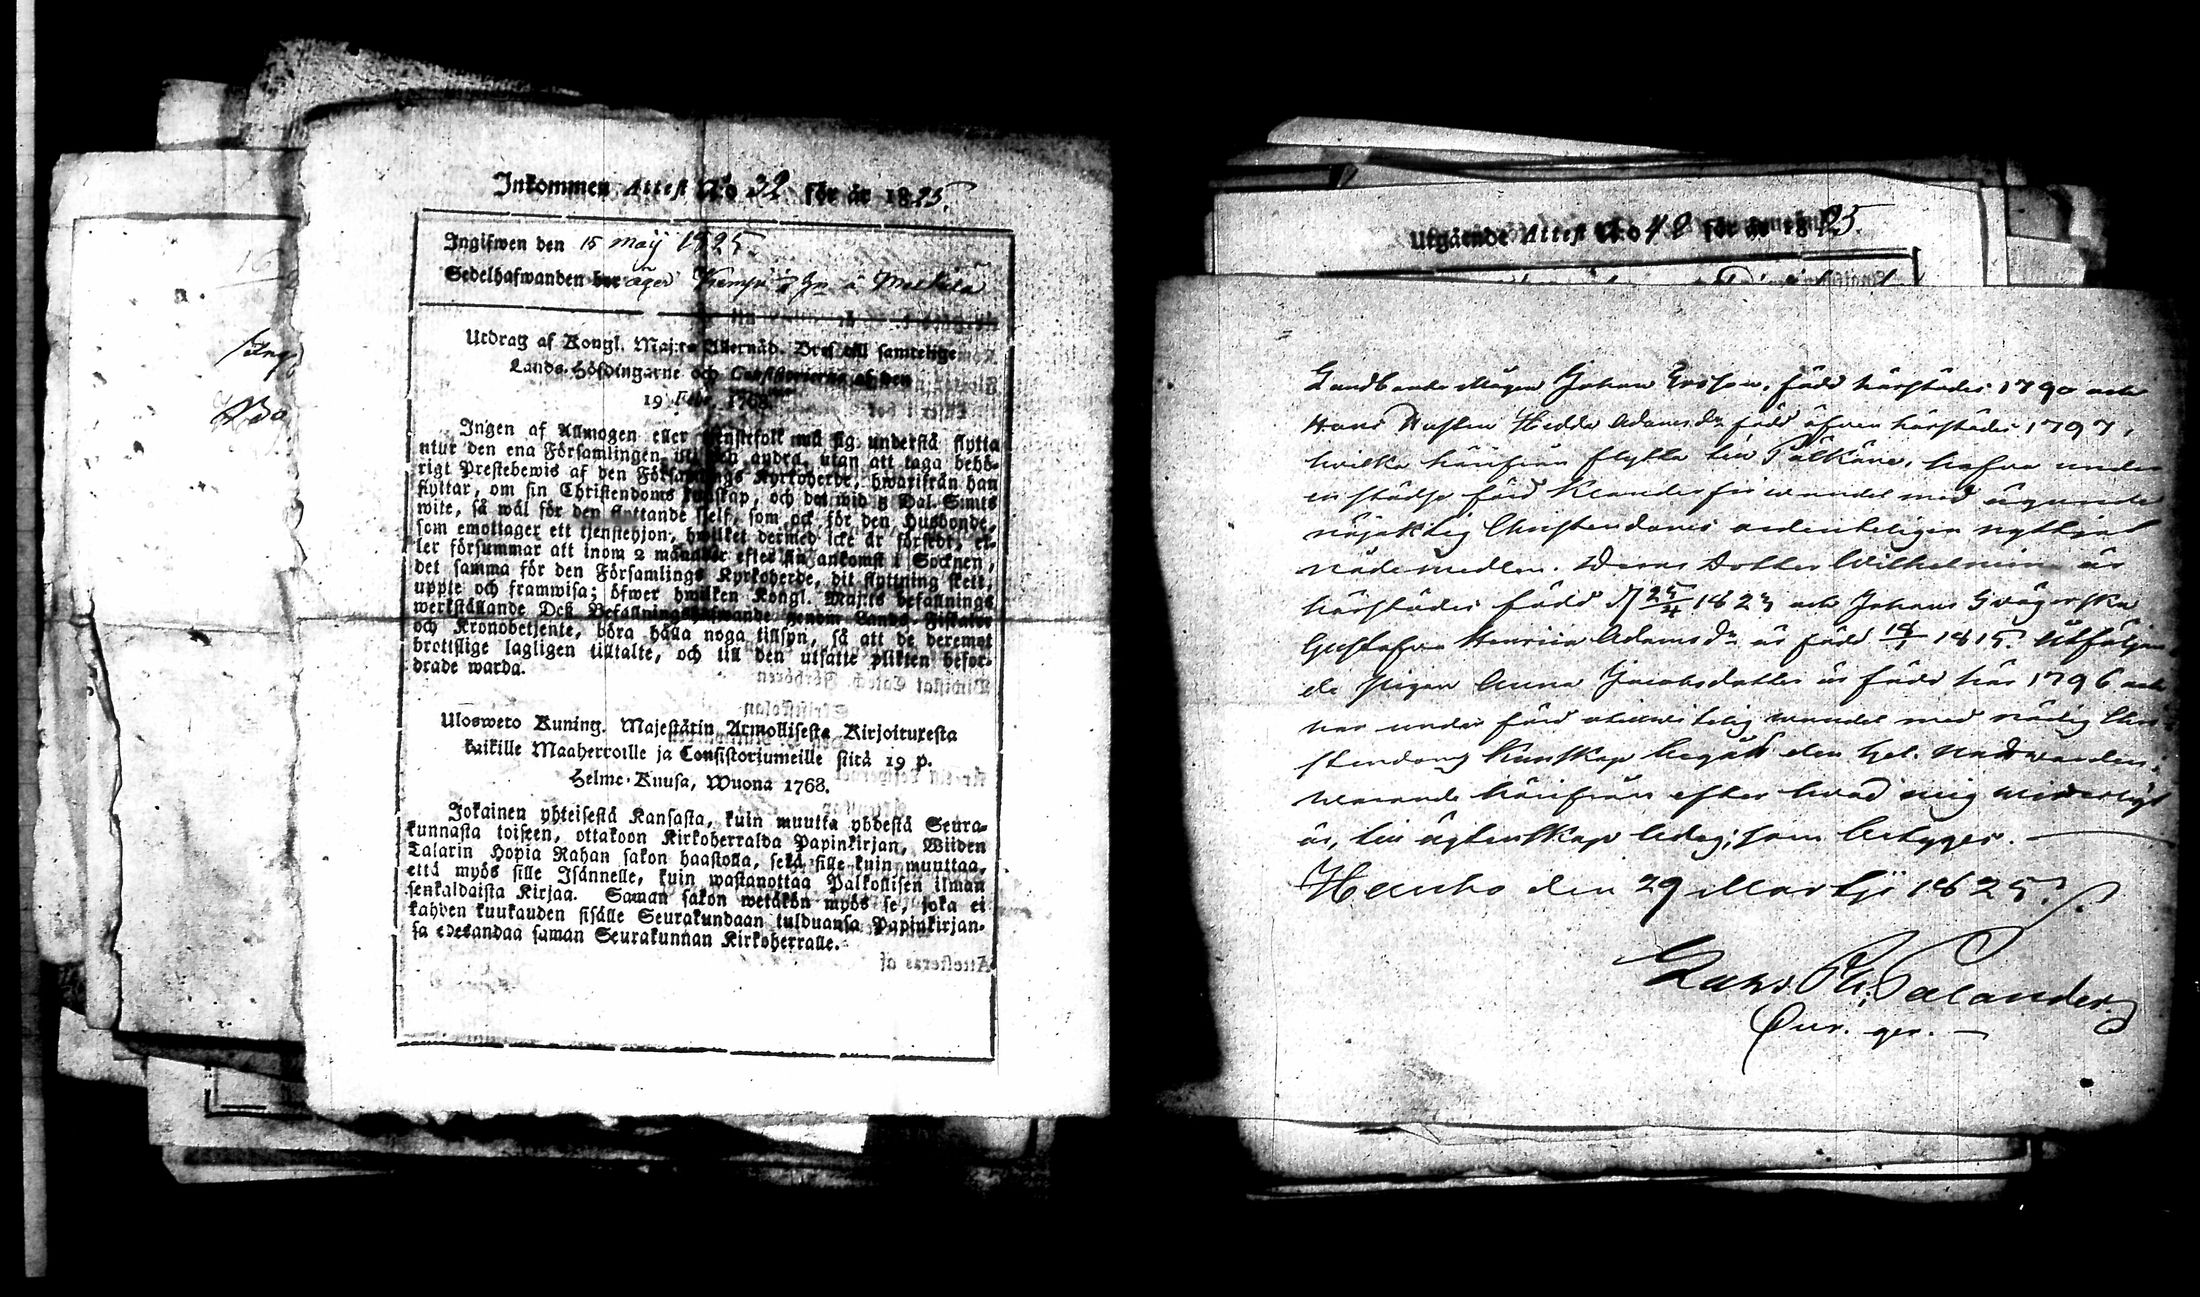 Inkommen Attest No 32 för år 1825.
Ingifwen den 15 Maij 1825.
Sedelhafwanden
Utdrag af Kongl. Maj:ts Allernåd. Bref till samtelige
Lands-Höfdingarne och Consistorierne af den
19 Febr. 1768.
Ingen af Allmogen eller tjenstefolk må sig understå flytta
utur den ena Församlingen till den andra, utan att taga behö-
rigt Prestebewis af den Församlings Kyrkoherde, hwarifrån han
flyttar, om sin Christendoms kunskap, och det wid 5 Dal. S:mts
wite, så wäl för den flyttande sjelf, som ock för den Husbonde,
som emottager ett tjenstehjon, hwilket dermed icke är försedt, el-
ler försummar att inom 2 månader efter sin ankomst i Socknen,
det samma för den Församlings Kyrkoherde, dit flyttning skett,
uppte och framwisa; öfwer hwilken Kongl. Maj:ts befallnings
werkställande Deß Befallningshafwande genom Lands-Fiskaler
och Kronobetjente, böra hålla noga tillsyn, så att de deremot
brottslige lagligen tilltalte, och till den utsatte plikten befor-
drade warda.
Ulosweto Kuning. Majestätin Armollisesta Kirjoituxesta
kaikille Maaherroille ja Consistoriumeille siitä 19 p.
Helme-Kuusa, Wuona 1768.
Jokainen yhteisestä Kansasta, kuin muutta yhdestä Seura-
kunnasta toiseen, ottakoon Kirkoherralda Papinkirjan, Wiiden
Talarin Hopia Rahan sakon haastolla, sekä sille kuin muuttaa,
että myös sille Isännelle, kuin wastanottaa Palkollisen ilman
senkaldaista Kirjaa. Saman sakon wetäkön myös se, joka ei
kahden kuukauden sisälle Seurakundaan tulduansa Papinkirjan-
sa edesandaa saman Seurakunnan Kirkoherralle.
Attesteras af
Utgående Attest No 48 för år 1825.
Landbonde Mågen Johan Ersson, född härstädes 1790 och
Hans Hustru Hedda Adamsdr född äfven härstädes 1797,
hvilka härifrån flytta till Pälkäne, hafva under
en städse förd klanderfri vandel med ägande
nöjaktig Christendoms ordenteligen nyttjat
nådemedlen. Deras Dotter Wilhelmina är
härstädes född d 25/4 1823 och Johans Svägerska
Gustafva Henrica Adamsdr är född 18/7 1815. Åtföljan-
de Pigan Anna Jacobsdotter är född här 1796 och
har under förd vandel med nödig Chri-
stendoms Kunskap begått den Hel. Nattvarden;
varande härifrån efter hvad mig
är, till ägtenskap ledig; som betygas.
Hauho den 29 Martji 1825.
Palander